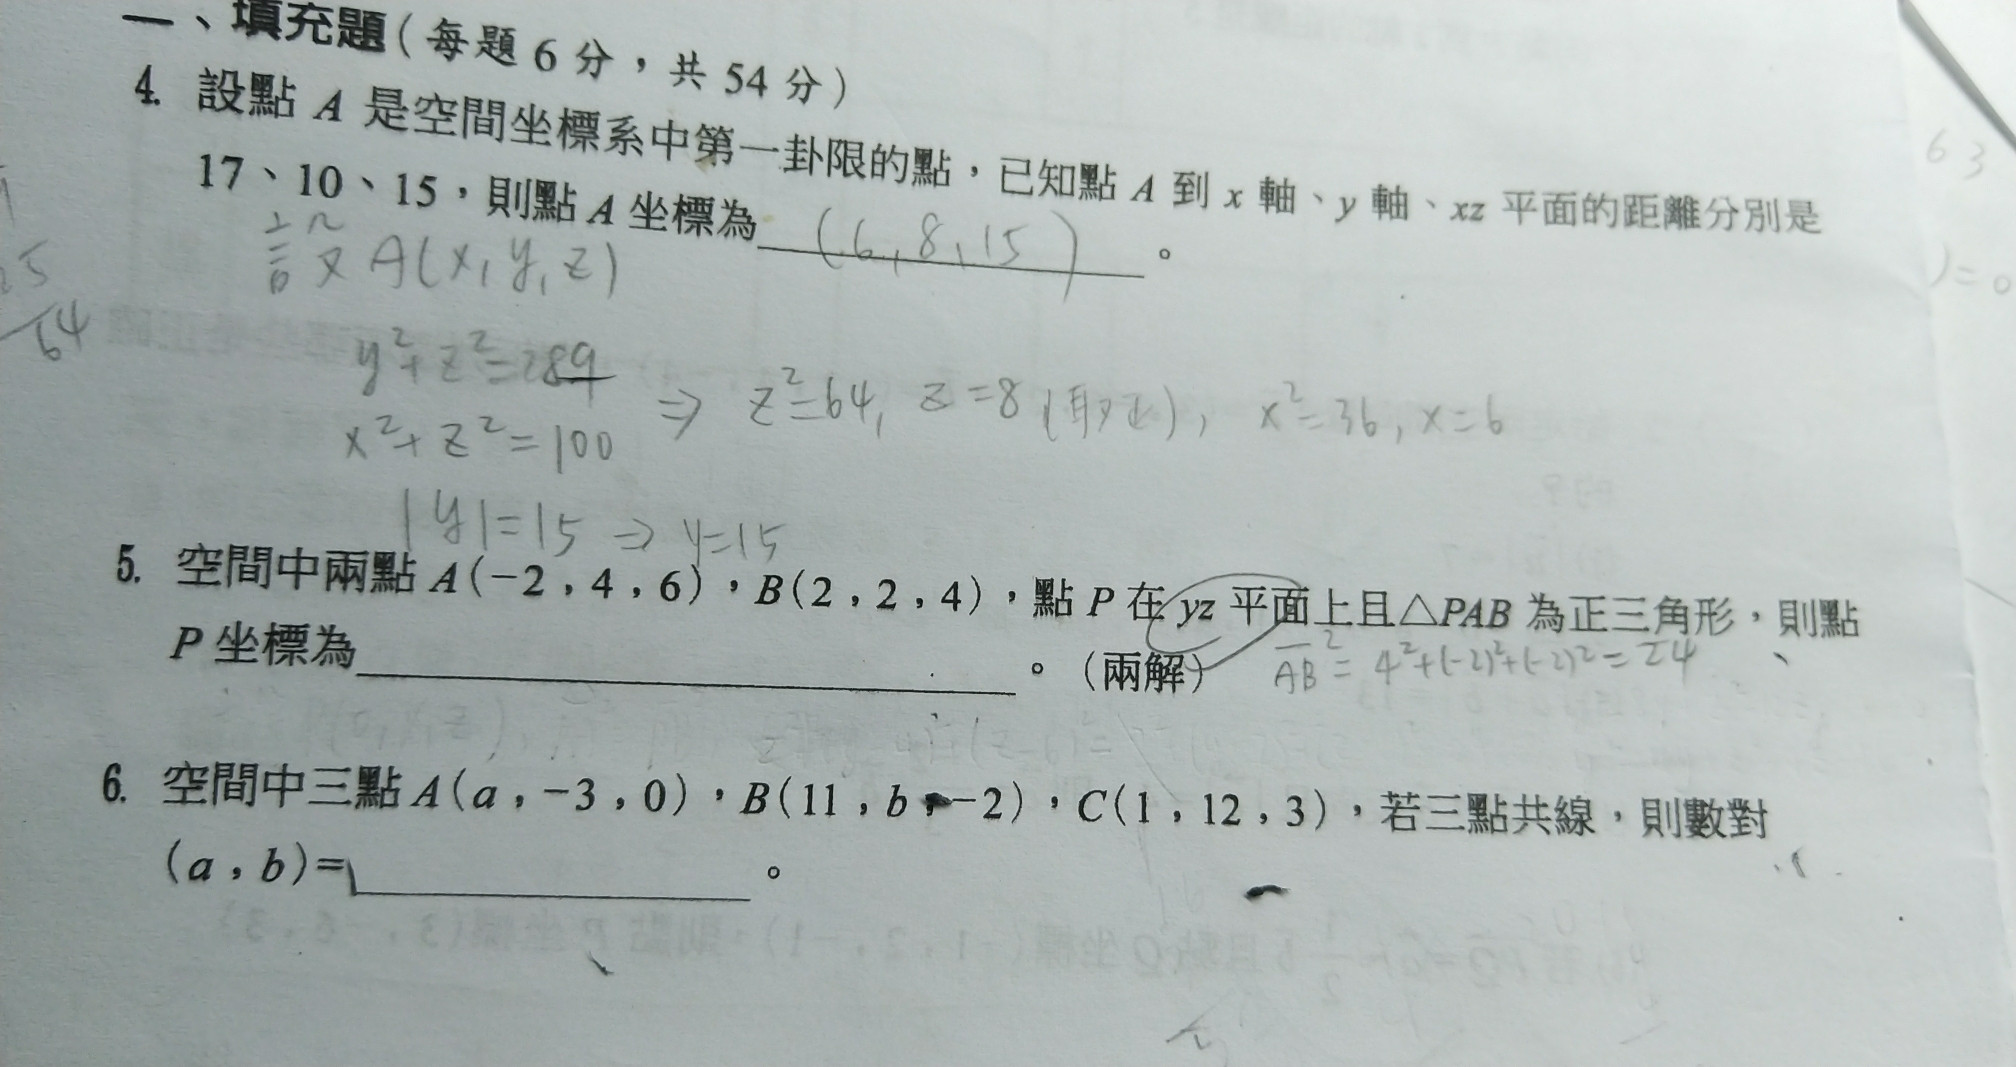 一、填充題(每題 6 分，共 54 分)
4. 設點 A 是空間坐標系中第一卦限的點，已知點 A 到 x 軸、y 軸、xz 平面的距離分別是
17、10、15，則點 A 坐標為 (6,8,15) 。
設 A(x,y,z)
y²+z²=289
x²+z²=100
⇒ z²=64, z=8 (取正), x²=36, x=6
|y|=15 ⇒ y=15
5. 空間中兩點 A(−2，4，6)，B(2，2，4)，點 P 在 yz 平面上且△PAB 為正三角形，則點
P 坐標為 。(兩解)
AB²=4²+(-2)²+(-2)²=24
6. 空間中三點 A(a，−3，0)，B(11，b，−2)，C(1，12，3)，若三點共線，則數對
(a，b)= 。
64
63